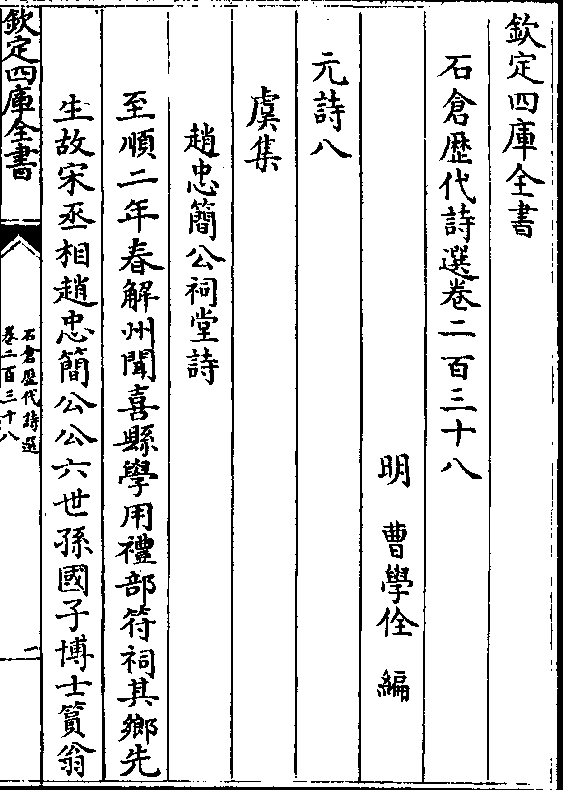 欽定四庫全書
石倉歴代詩選卷二百三十八
明 曹學佺 編
元詩八
虞集
趙忠簡公祠堂詩
至順二年春解州聞喜縣學用禮部符祠其鄉先
生故宋丞相趙忠簡公公六世孫國子博士篔翁
欽定四庫全書
石倉歴代詩選
卷二百三十八
一